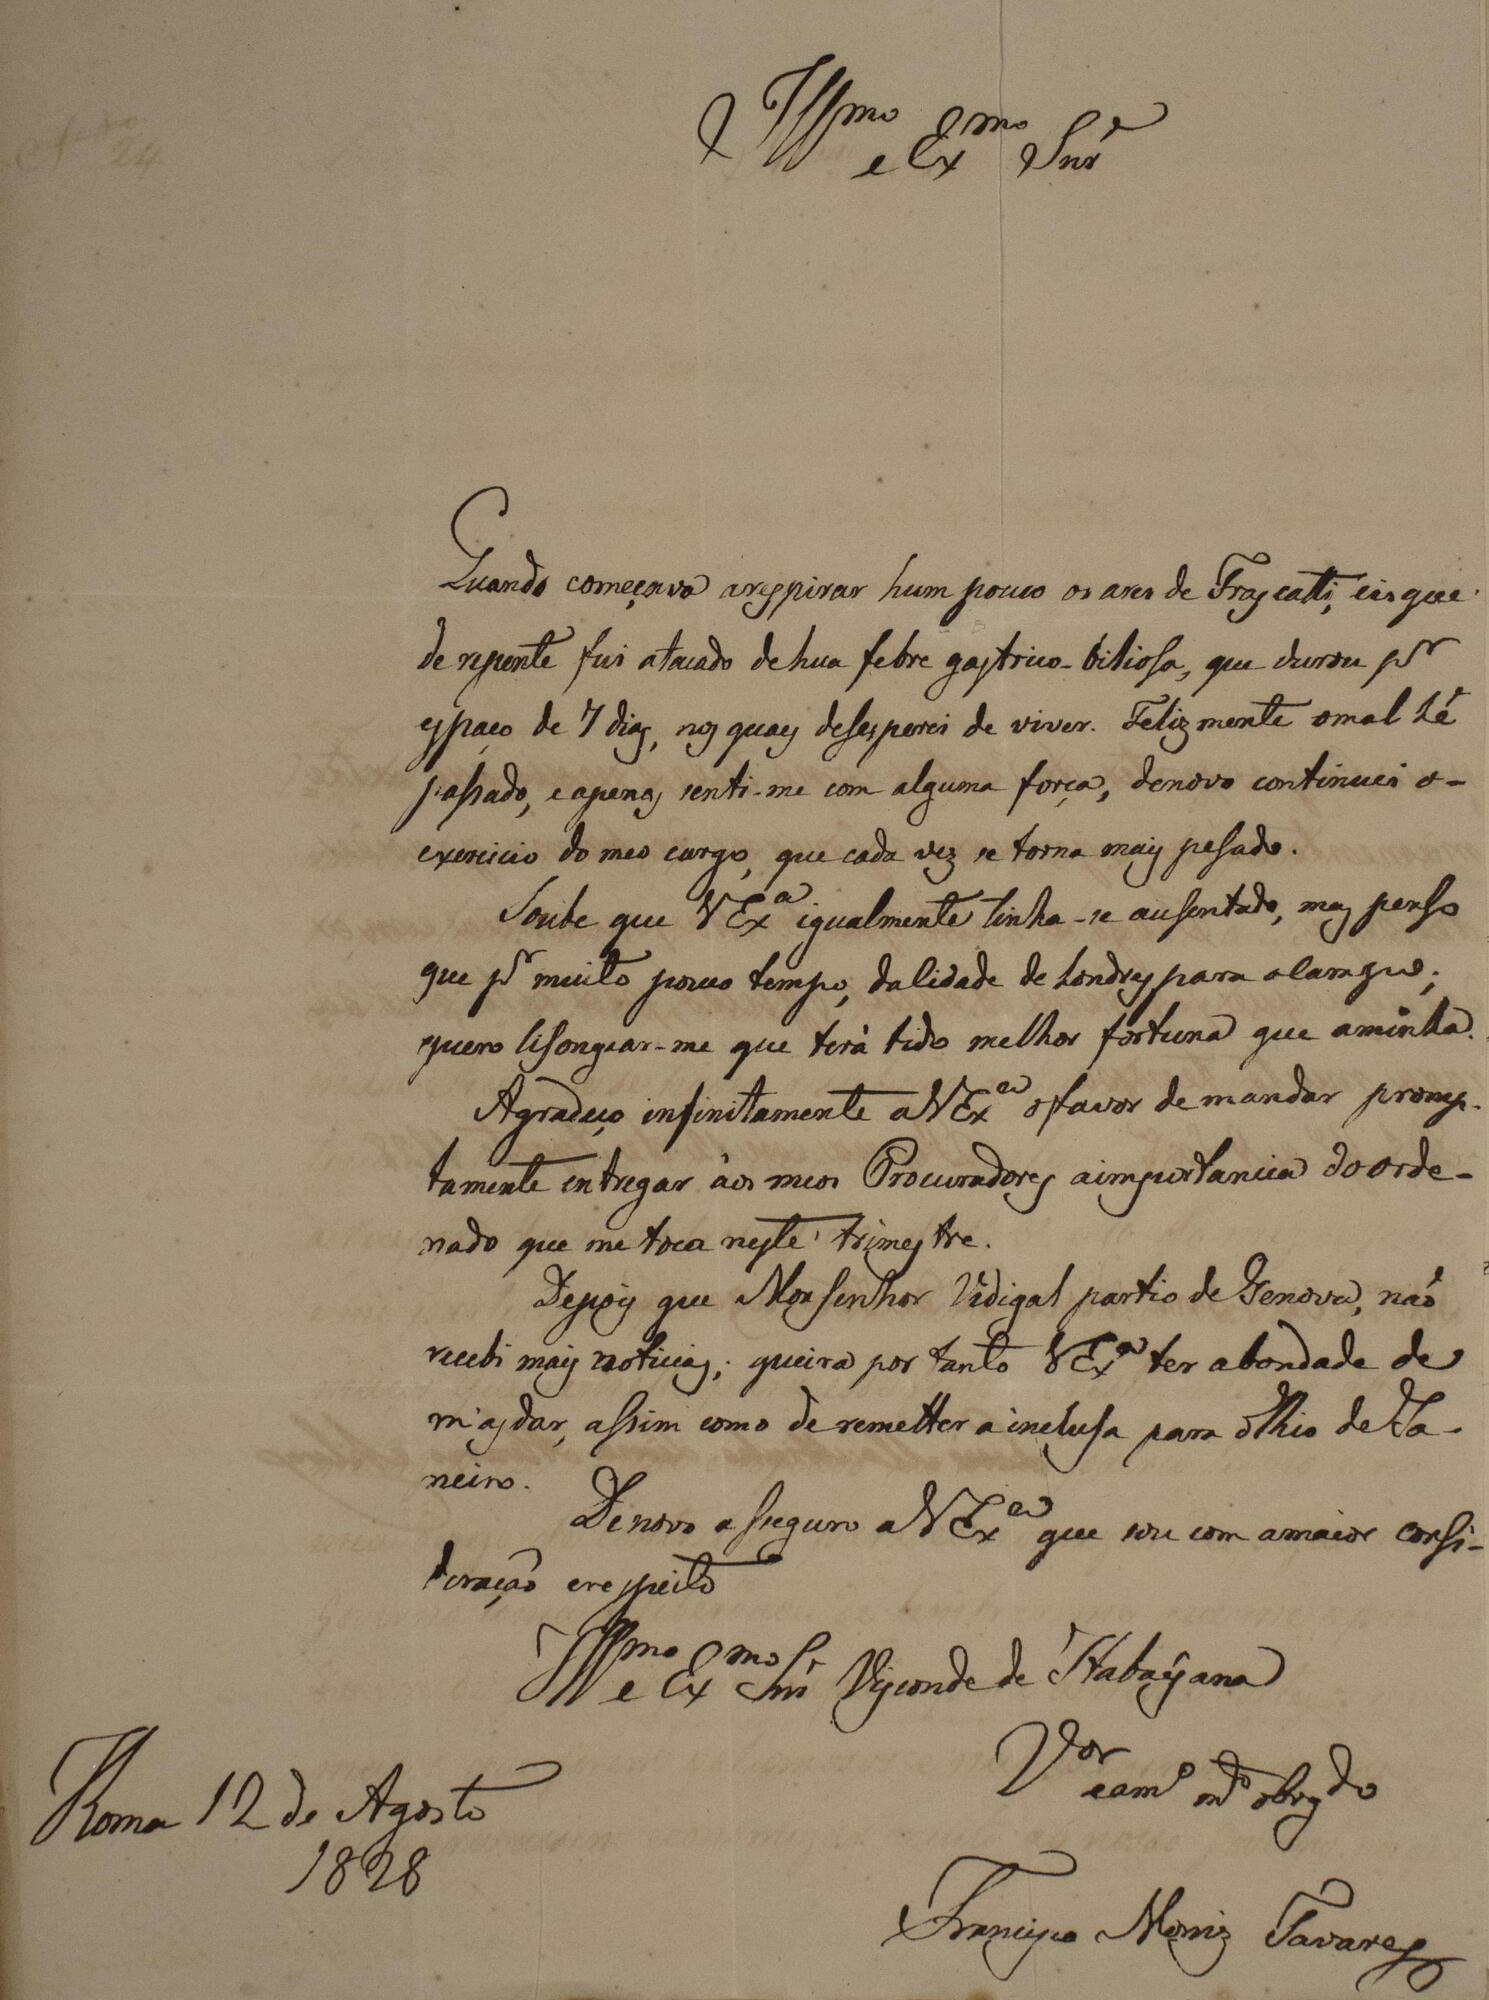 Illmo e Exmo Snr
Quando começava arespirar hum pouco os ares de Frascatti, eis que
de repente fui atacado de hua febre gastrico-biliosa, que durou pr
espaço de 7 dias, nos quaes desesperei de viver. Felizmente omal hé
passado, e apenas senti-me com alguma força, denovo continuei o-
exercicio do meo cargo, que cada vez se torna mais pesado.
Soube que VExa igualmente tinha-se ausentado, mas penso
que pr muito pouco tempo, da Cidade de Londres para o Campo;
quero lisongear-me que terá tido melhor fortuna que aminha.
Agradeço infinitamente aVExa ofavor de mandar promp-
tamente entregar áos meos Procuradores aimportancia do orde-
nado que me toca neste trimestre.
Depois que Monsenhor Vidigal partio de Genova, não
recebi mais noticias; queira por tanto VExa ter abondade de
m'as dar, assim como de remetter a inclusa para o Rio de Ja-
neiro.
Denovo asseguro aVExa que sou com amaior consi-
deração erespeito
Illmo e Exmo Snr Visconde de Itabayana
Vor eamo mto obrgdo
Roma 12 de Agosto
1828
Francisco Moniz Tavares